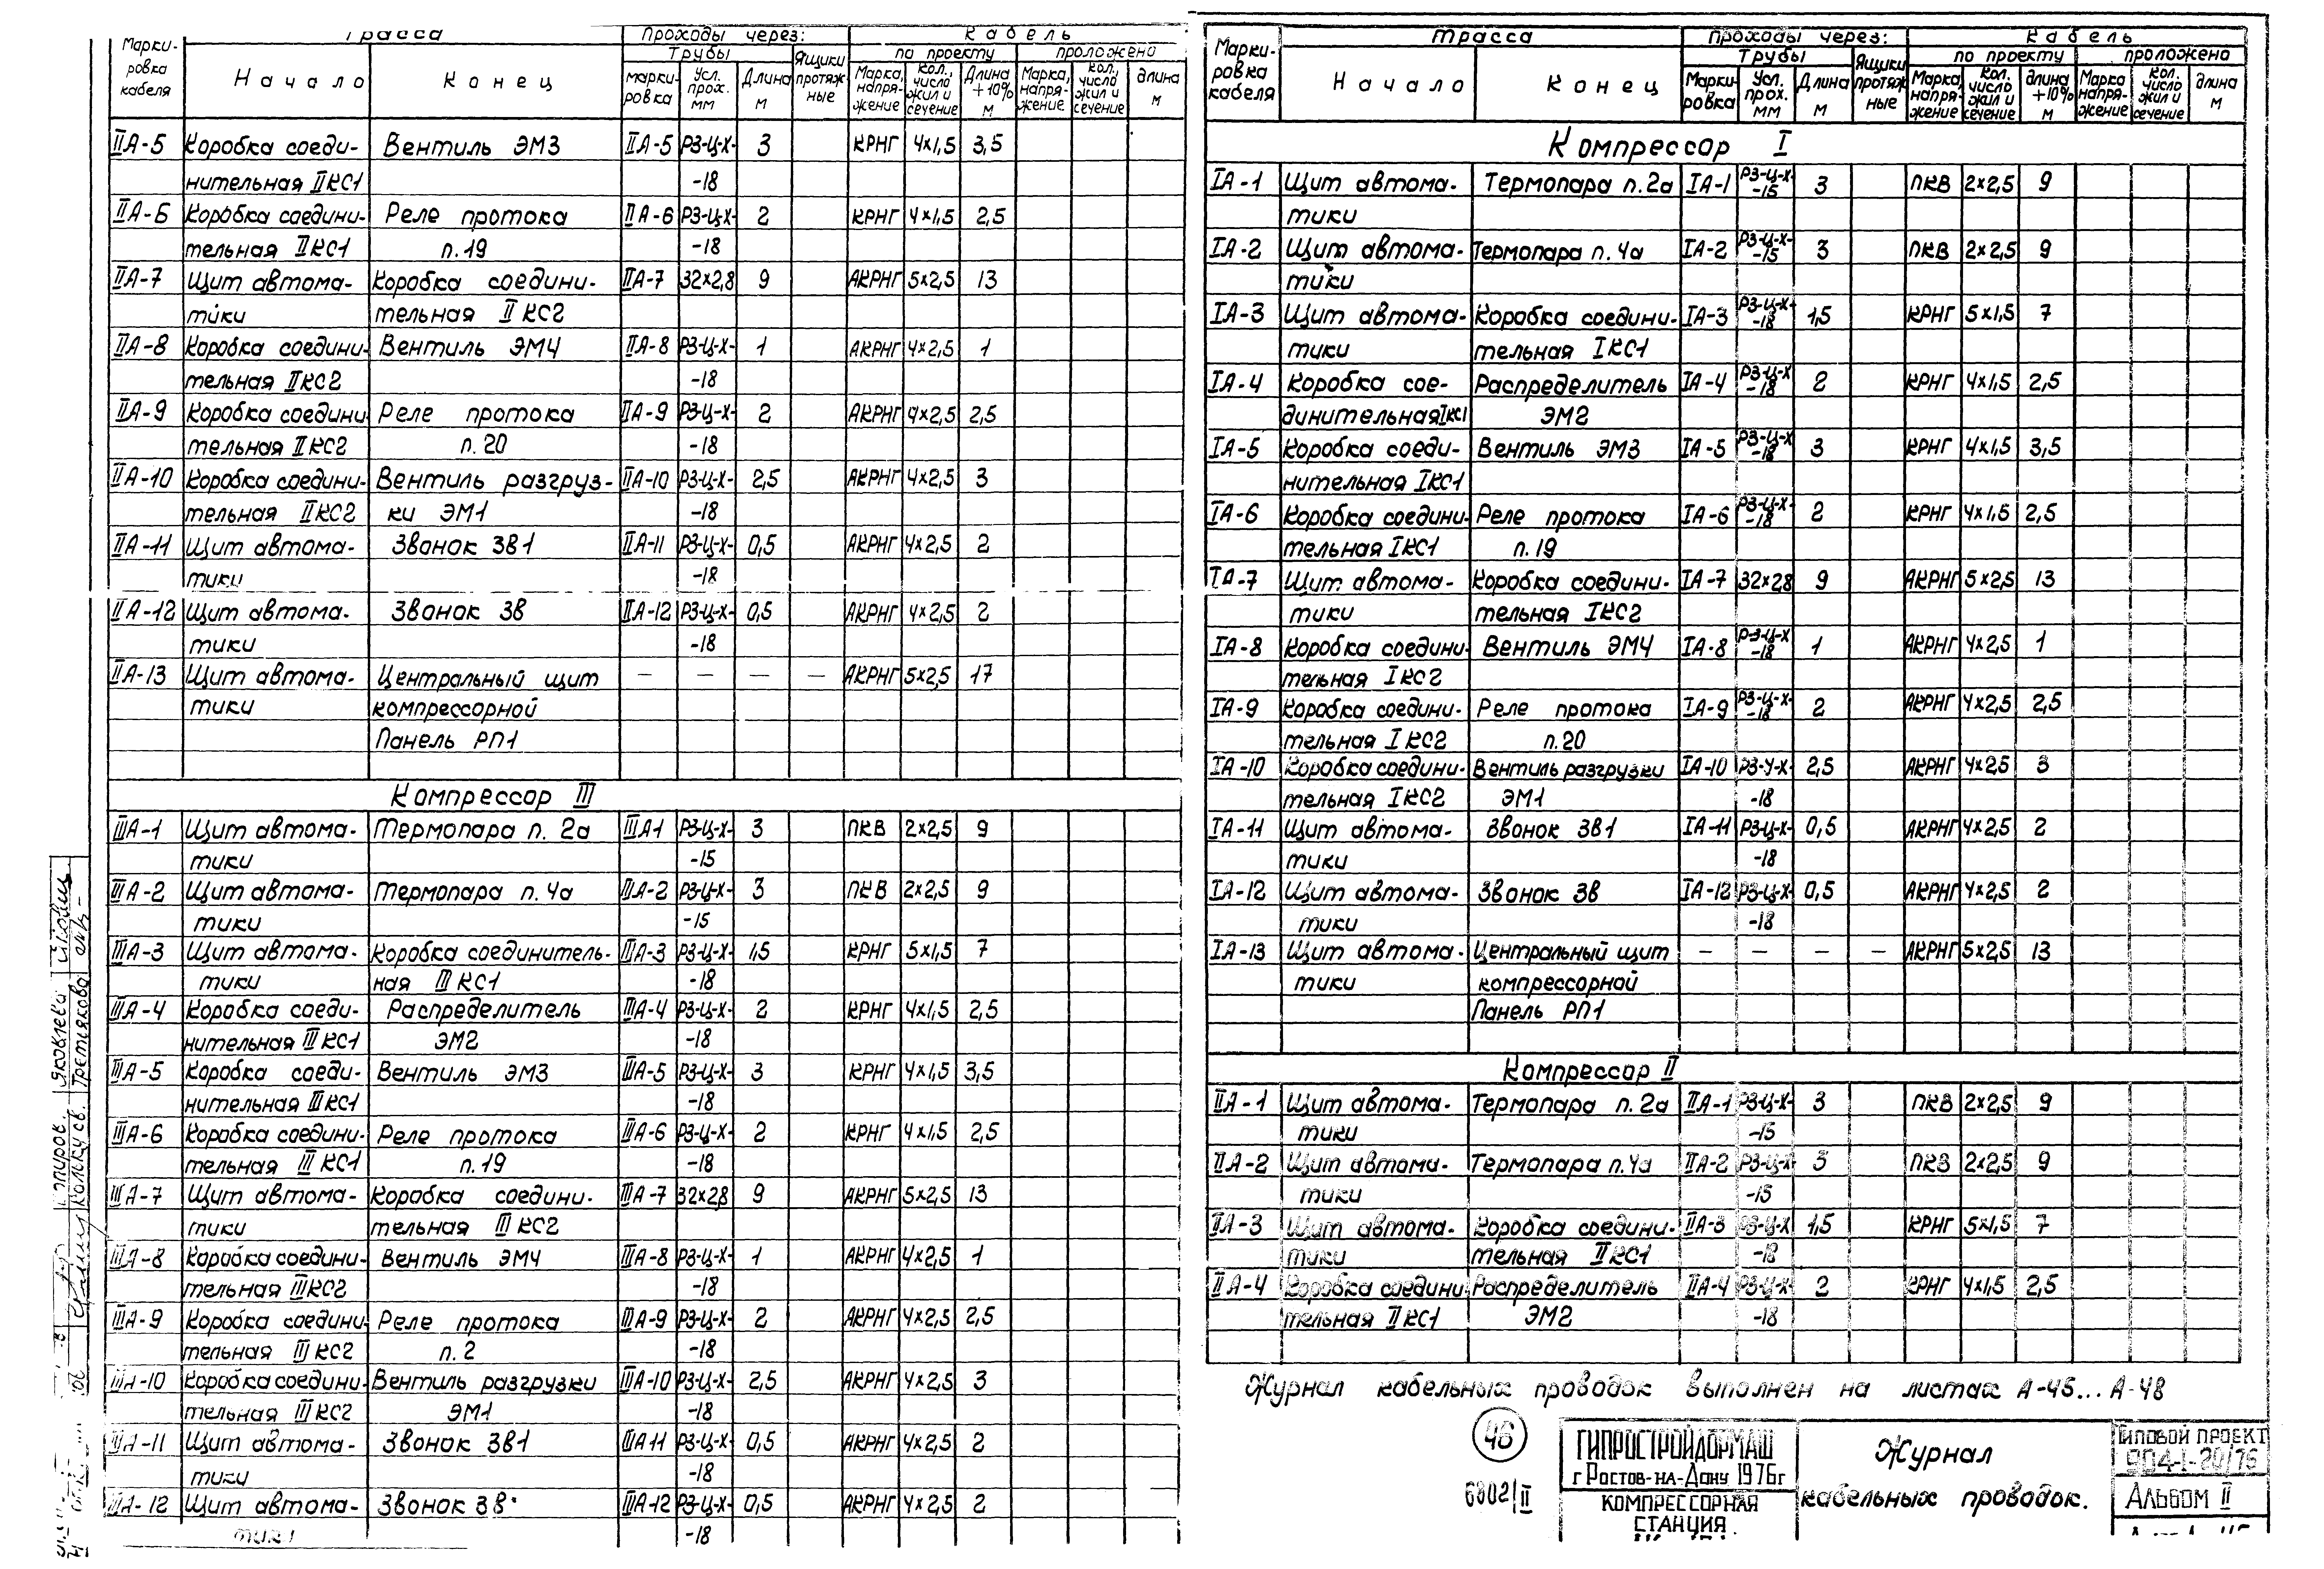 Трасса
Проходы через:
Кабель
Марки-
ровка
кабеля
Начало
Конец
Трубы
Ящики
протяж-
ные
по проекту
проложено
марки-
ровка
Усл.
прох.
мм
Длина
м
Марка,
напря-
жение
Кол.,
число
жил и
сечение
Длина
+10%
м
Марка,
напря-
жение
кол,
число
жил и
сечение
длина
м
IIА-5 Коробка соеди- Вентиль ЭМ3 IIА-5 РЗ-Ц-Х- 3 КРНГ 4х1,5 3,5
нительная IIКС1 -18
IIА-6 Коробка соедини- Реле протока IIА-6 РЗ-Ц-Х- 2 КРНГ 4х1,5 2,5
тельная IIКС1 п.19 -18
IIА-7 Щит автома- Коробка соедини- IIА-7 32х2,8 9 АКРНГ 5х2,5 13
тики тельная IIКС2
IIА-8 Коробка соедини- Вентиль ЭМ4 IIА-8 РЗ-Ц-Х- 1 АКРНГ 4х2,5 1
тельная IIКС2 -18
IIА-9 Коробка соедини Реле протока IIА-9 РЗ-Ц-Х- 2 АКРНГ 4х2,5 2,5
тельная IIКС2 п.20 -18
IIА-10 Коробка соедини- Вентиль разгруз- IIА-10 РЗ-Ц-Х- 2,5 АКРНГ 4х2,5 3
тельная IIКС2 ки ЭМ1 -18
IIА-11 Щит автома- Звонок ЗВ1 IIА-11 РЗ-Ц-Х- 0,5 АКРНГ 4х2,5 2
тики -18
IIА-12 Щит автома- Звонок ЗВ IIА-12 РЗ-Ц-Х- 0,5 АКРНГ 4х2,5 2
тики -18
IIА-13 Щит автома- Центральный щит — — — — АКРНГ 5х2,5 17
тики компрессорной
Панель РП1
Компрессор III
IIIА-1 Щит автома- Термопара п. 2а IIIА1 РЗ-Ц-Х- 3 ПКВ 2х2,5 9
тики -15
IIIА-2 Щит автома- Термопара п. 4а IIIА-2 РЗ-Ц-Х- 3 ПКВ 2х2,5 9
тики -15
IIIА-3 Щит автома- Коробка соединитель- IIIА-3 РЗ-Ц-Х- 1,5 КРНГ 5х1,5 7
тики ная IIIКС1 -18
IIIА-4 Коробка соеди- Распределитель IIIА-4 РЗ-Ц-Х- 2 КРНГ 4х1,5 2,5
нительная IIIКС1 ЭМ2 -18
IIIА-5 Коробка соеди- Вентиль ЭМ3 IIIА-5 РЗ-Ц-Х- 3 КРНГ 4х1,5 3,5
нительная IIIКС1 -18
IIIА-6 Коробка соедини- Реле протока IIIА-6 РЗ-Ц-Х- 2 КРНГ 4х1,5 2,5
тельная IIIКС1 п.19 -18
IIIА-7 Щит автома- Коробка соедини- IIIА-7 32х2,8 9 АКРНГ 5х2,5 13
тики тельная IIIКС2
IIIА-8 Коробка соедини- Вентиль ЭМ4 IIIА-8 РЗ-Ц-Х- 1 АКРНГ 4х2,5 1
тельная IIIКС2 -18
IIIА-9 Коробка соедини Реле протока IIIА-9 РЗ-Ц-Х- 2 АКРНГ 4х2,5 2,5
тельная IIIКС2 п.2 -18
IIIА-10 Коробка соедини- Вентиль разгрузки IIIА-10 РЗ-Ц-Х- 2,5 АКРНГ 4х2,5 3
тельная IIIКС2 ЭМ1 -18
IIIА-11 Щит автома- Звонок ЗВ1 IIIА11 РЗ-Ц-Х- 0,5 АКРНГ 4х2,5 2
тики -18
IIIА-12 Щит автома- Звонок ЗВ IIIА-12 РЗ-Ц-Х- 0,5 АКРНГ 4х2,5 2
тики -18
Копиров. Яковлева
Кольку св. Третьякова
Трасса
Проходы через:
Кабель
Марки-
ровка
кабеля
Начало
Конец
Трубы
Ящики
протяж-
ные
по проекту
проложено
Марки-
ровка
Усл.
прох.
мм
Длина
м
Марка,
напря-
жение
Кол.
число
жил и
сечение
длина
+10%
м
Марка
напря-
жение
кол.
число
жил и
сечение
длина
м
Компрессор I
IА-1 Щит автома- Термопара п.2а IА-1 РЗ-Ц-Х- 3 ПКВ 2х2,5 9
тики -15
IА-2 Щит автома- Термопара п.4а IА-2 РЗ-Ц-Х- 3 ПКВ 2х2,5 9
тики -15
IА-3 Щит автома- Коробка соедини- IА-3 РЗ-Ц-Х- 1,5 КРНГ 5х1,5 7
тики тельная IКС1 -18
IА-4 Коробка сое- Распределитель IА-4 РЗ-Ц-Х 2 КРНГ 4х1,5 2,5
динительная IКС1 ЭМ2 -18
IА-5 Коробка соеди- Вентиль ЭМ3 IА-5 РЗ-Ц-Х 3 КРНГ 4х1,5 3,5
нительная IКС1 -18
IА-6 Коробка соедини- Реле протока IА-6 РЗ-Ц-Х- 2 КРНГ 4х1,5 2,5
тельная IКС1 п.19 -18
IА-7 Щит автома- Коробка соедини- IА-7 32х2,8 9 АКРНГ 5х2,5 13
тики тельная IКС2
IА-8 Коробка соедини- Вентиль ЭМ4 IА-8 РЗ-Ц-Х 1 АКРНГ 4х2,5 1
тельная IКС2 -18
IА-9 Коробка соедини- Реле протока IА-9 РЗ-Ц-Х- 2 АКРНГ 4х2,5 2,5
тельная IКС2 п.20 -18
IА-10 Коробка соедини- Вентиль разгрузки IА-10 РЗ-У-Х- 2,5 АКРНГ 4х2,5 3
тельная IКС2 ЭМ1 -18
IА-11 Щит автома- Звонок ЗВ1 IА-11 РЗ-Ц-Х- 0,5 АКРНГ 4х2,5 2
тики -18
IА-12 Щит автома- Звонок ЗВ IА-12 РЗ-Ц-Х- 0,5 АКРНГ 4х2,5 2
тики -18
IА-13 Щит автома- Центральный щит — — — — АКРНГ 5х2,5 13
тики компрессорной
Панель РП1
Компрессор II
IIА-1 Щит автома- Термопара п. 2а IIА-1 РЗ-Ц-Х- 3 ПКВ 2х2,5 9
тики -15
IIА-2 Щит автома- Термопара п.4а IIА-2 РЗ-Ц-Х- 3 ПКВ 2х2,5 9
тики -15
IIА-3 Щит автома- Коробка соедини- IIА-3 РЗ-Ц-Х 1,5 КРНГ 5х1,5 7
тики тельная IIКС1 -18
IIА-4 Коробка соедини Распределитель IIА-4 РЗ-Ц-Х- 2 КРНГ 4х1,5 2,5
тельная IIКС1 ЭМ2 -18
Журнал кабельных проводок выполнен на листах А-45...А-48
46
ГИПРОСТРОЙДОРМАШ
г Ростов-на-Дону 1976г
КОМПРЕССОРНАЯ
СТАНЦИЯ
Журнал
кабельных проводок.
ТИПОВОЙ ПРОЕКТ
904-1-20/76
Альбом II